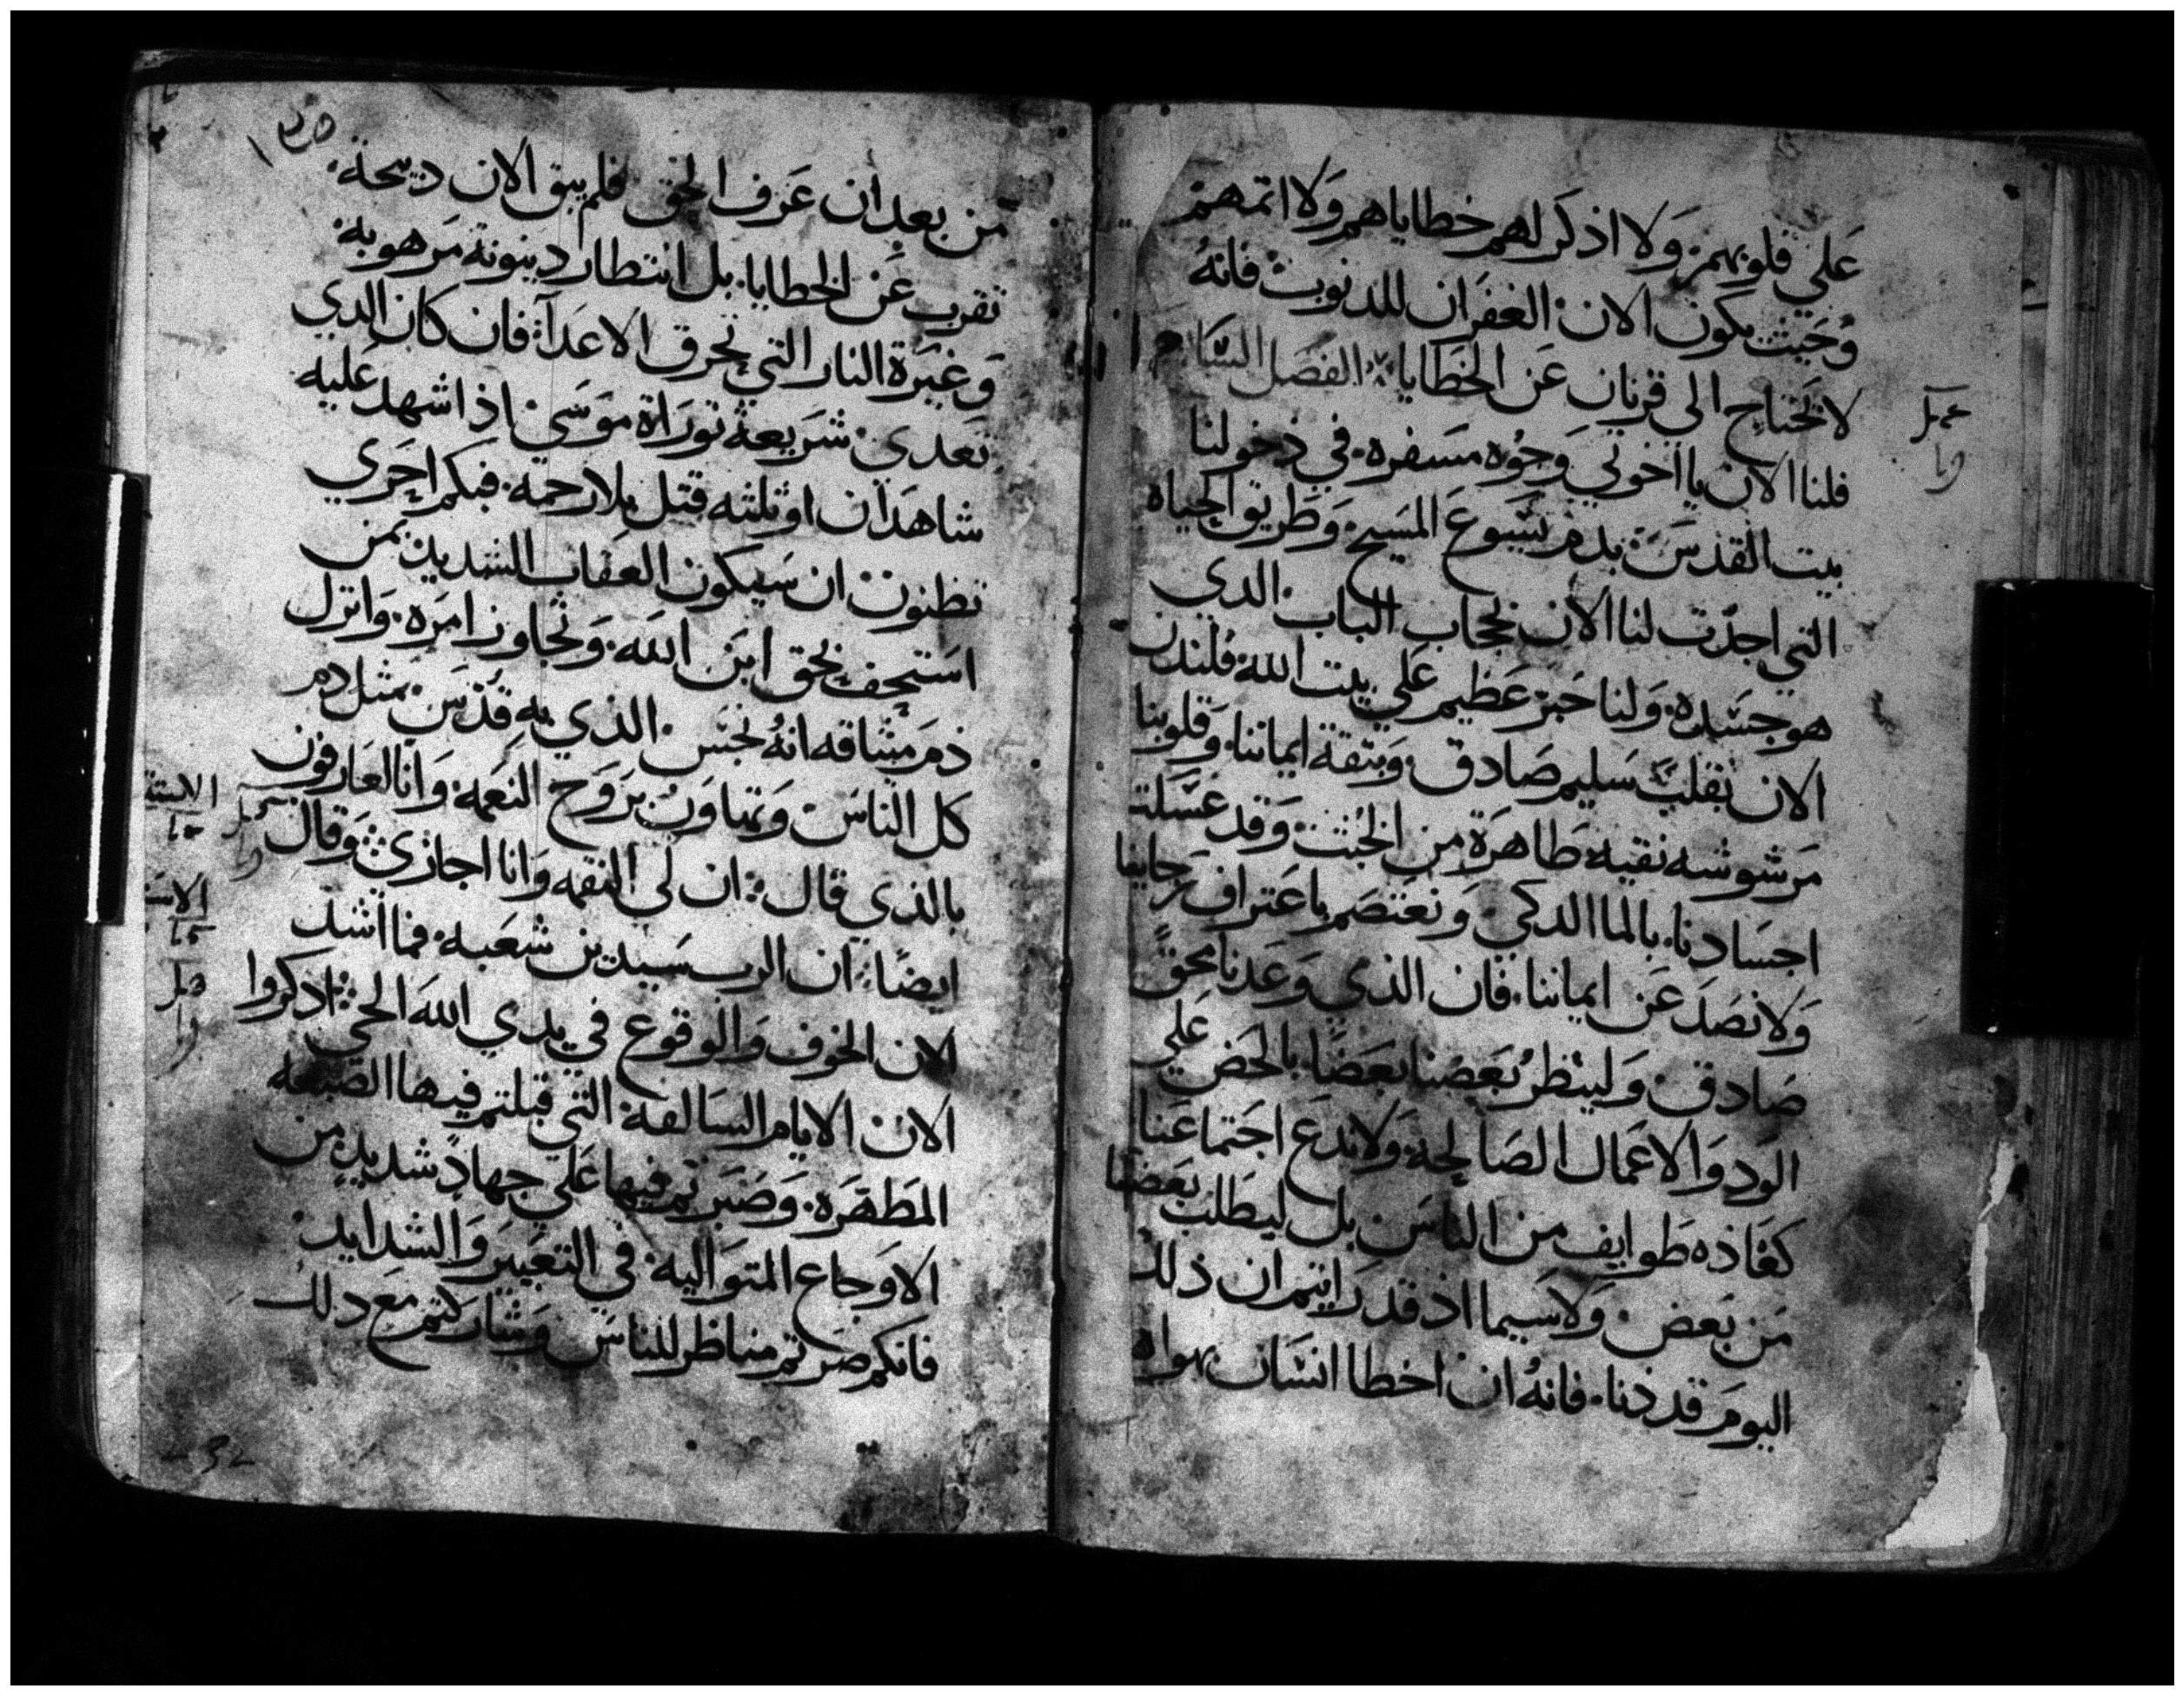 علي قلوبهم. ولا اذكر لهم خطاياهم ولا اثمهم
وحيث يكون الان الغفران للدنوب فانه
لا تحتاج الي قربان عن الخطايا. الفصل السابع
فلنا الان يا اخوتي وجوه مسفره. في دخولنا
بيت القدس بدم يسوع المسيح وطريق الحياه
التي اجدت لنا الان بحجاب الباب الدي
هو جسده. ولنا حبر عظيم علي بيت الله فلندن
الان بقلب سليم صادق وبتقة ايماننا. وقلوبنا
مرشوشه نقيه طاهرة من الخبث. وقد غسلت
اجسادنا. بالما الدكي ونعتصم باعتراف رجاينا
ولا نصد عن ايماننا. فان الذي وعدنا محق
صادق ولينظر بعضنا بعضا بالحض علي
الود والاعمال الصالحة ولا ندع اجتماعنا
كعاذه طوايف من الناس بل ليطلب بعضنا
من بعض ولا سيما اذ قد رايتم ان ذلك
اليوم قد دنا. فانه ان اخطا انسان بهواه
عمل
من بعد ان عرف الحق فلم يبق الان دبيحة.
تقرب عن الخطايا. بل انتطار دينونة مرهوبة
وغيرة النار التي تحرق الاعدآ. فان كان الدي
تعدي شريعة توراة موسي اذا شهد عليه
شاهدان او ثلثه قتل بلا رحمة. فبكم احري
تظنون ان سيكون العقاب الشديد بمن
استخف بحق ابن الله. وتجاوز امره. وانزل
دم ميثاقه انه نجس الذي به قدس مثل دم
كل الناس وتهاون بروح النعمه وانا لعارفون
بالذي قال: ان لي النقمه وانا اجازي وقال
ايضا: ان الرب سيدين شعبه. فما اشد
الان الخوف والوقوع في يدي الله الحي: اذكروا
الان الايام السالفة التي قبلتم فيها الصبغه
المطهره. وصبرتم فيها علي جهاد شديد من
الاوجاع المتواليه. في التعيير والشدايد
فانكم صرتم مناظر للناس وشاركتم مع دلك